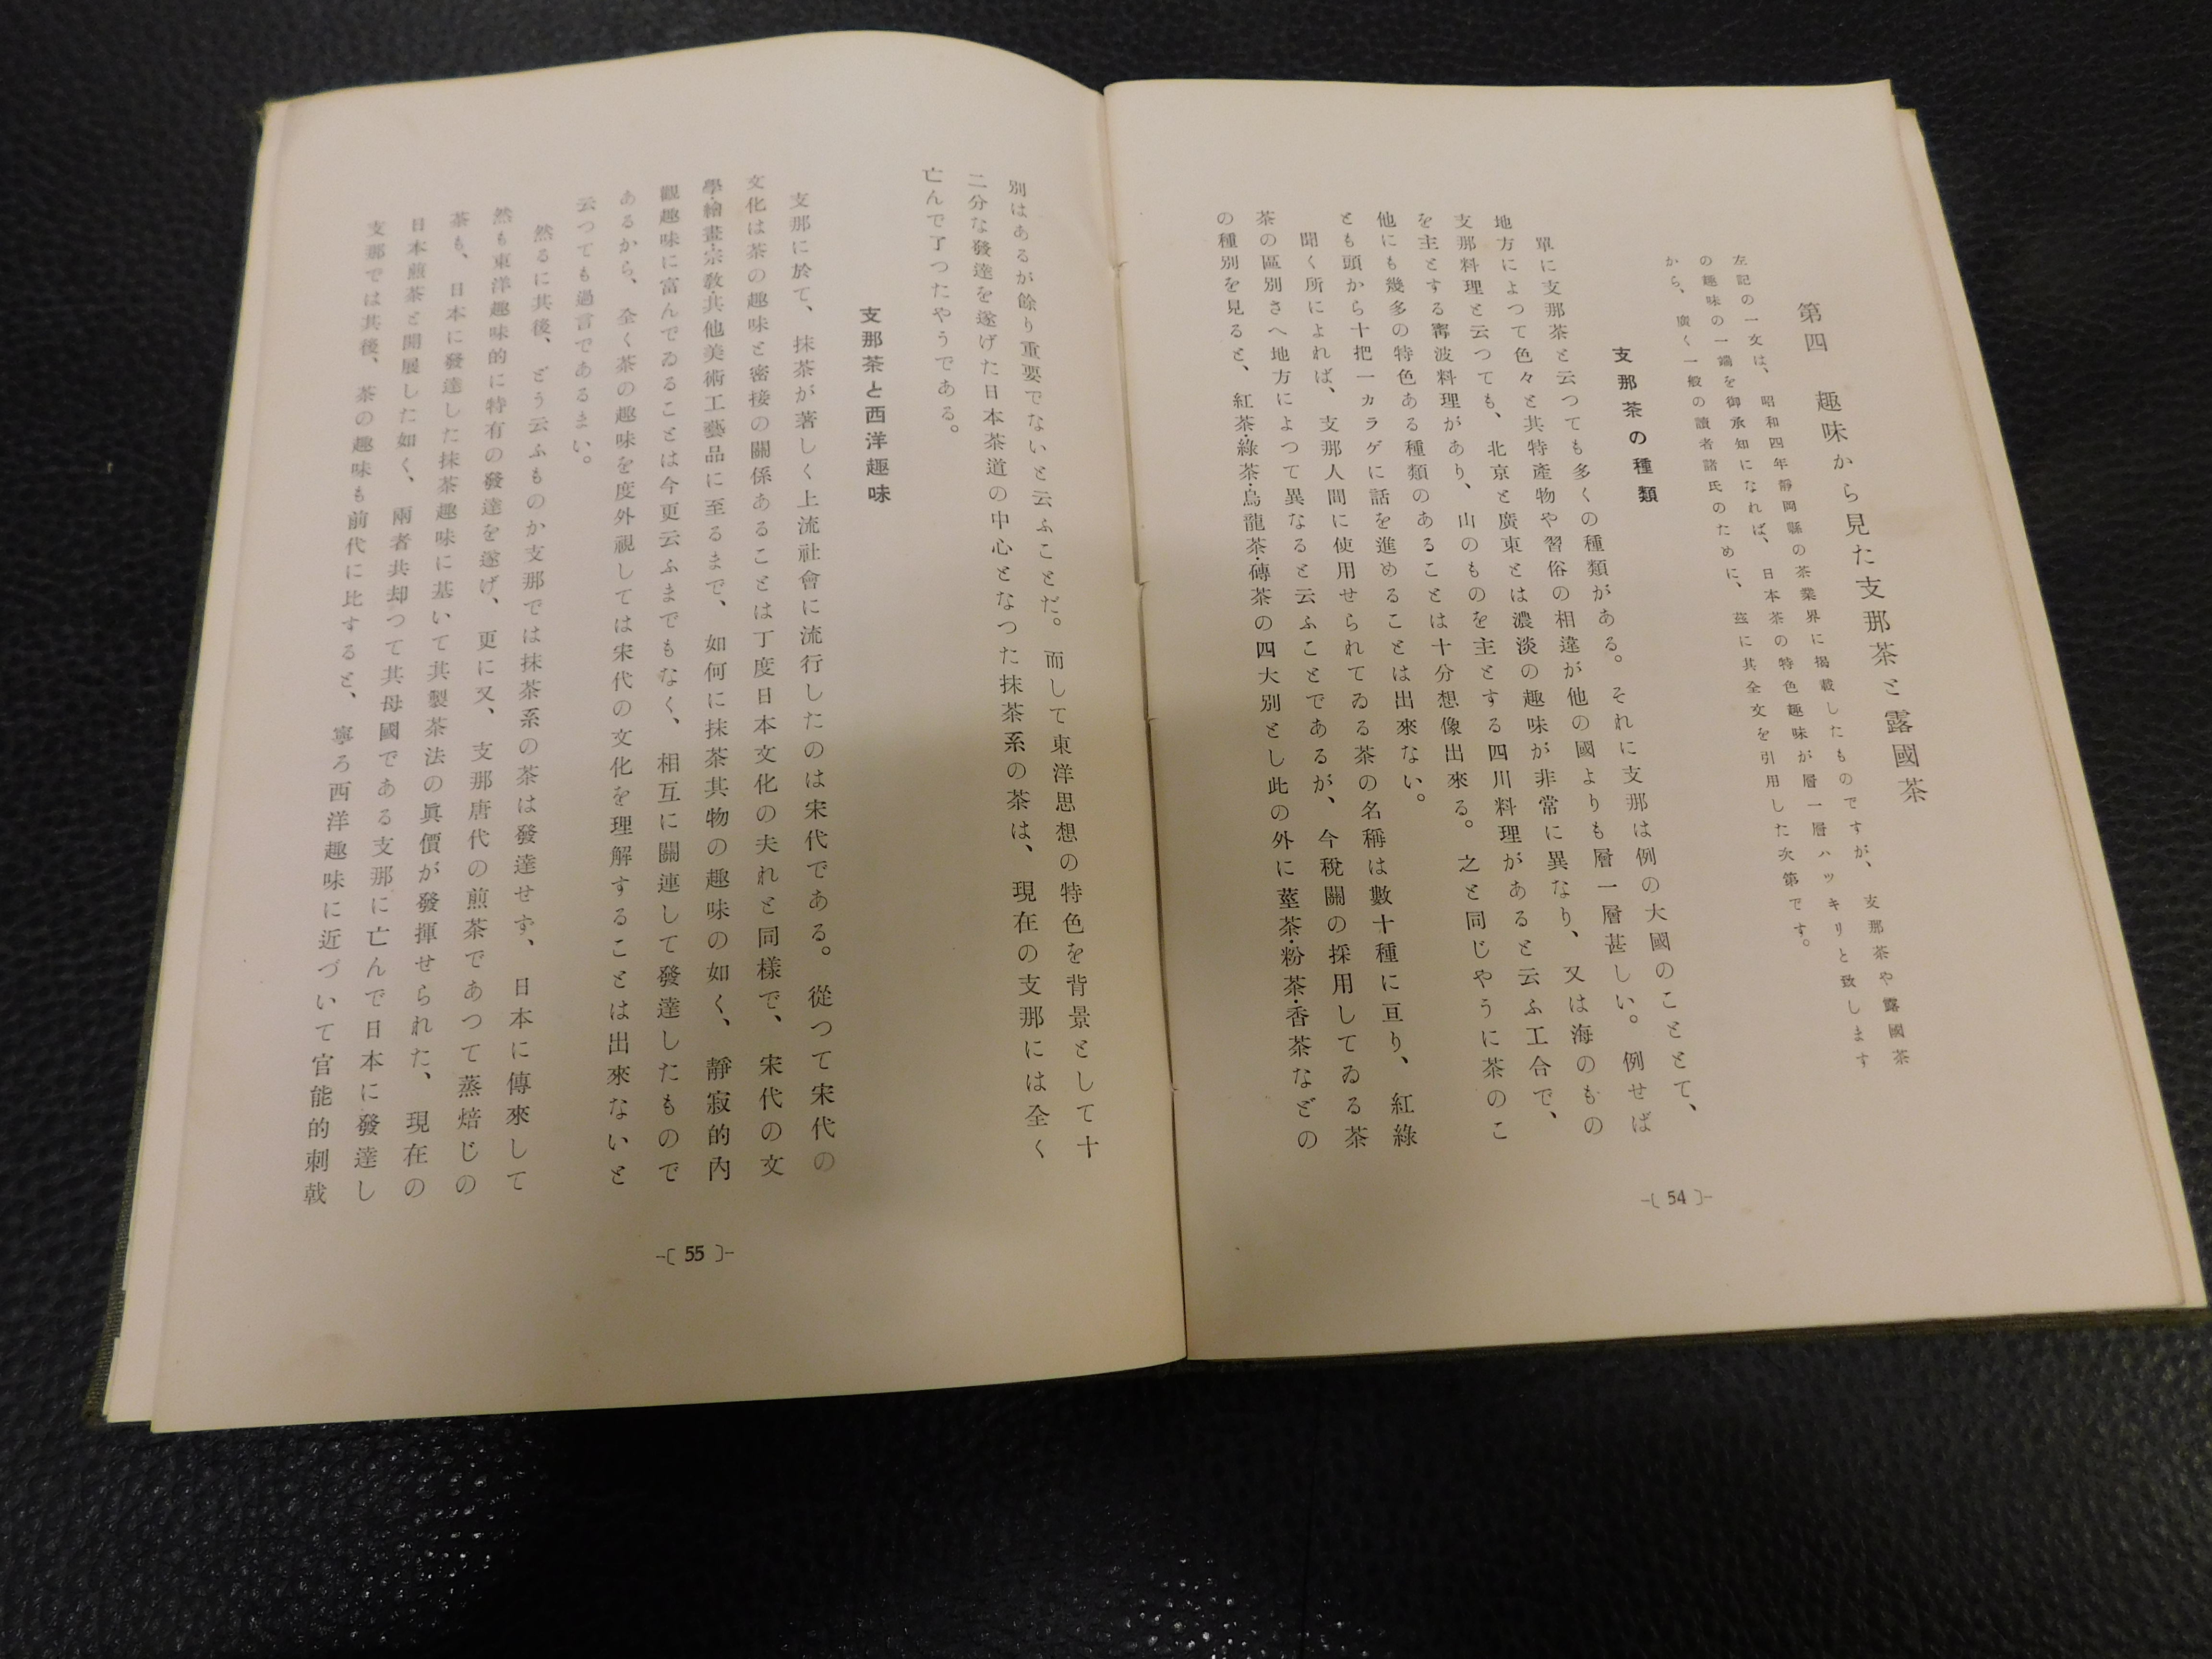 第四　趣味から見た支那茶と露國茶
左記の一文は、昭和四年靜岡縣の茶業界に揭載したものですが、支那茶や露國茶
の趣味の一端を御承知になれば、日本茶の特色趣味が層一層ハツキリと致します
から、廣く一般の讀者諸氏のために、茲に其全文を引用した次第です。
支那茶の種類
單に支那茶と云つても多くの種類がある。それに支那は例の大國のこととて、
地方によつて色々と其特產物や習俗の相違が他の國よりも層一層甚しい。例せば
支那料理と云つても、北京と廣東とは濃淡の趣味が非常に異なり、又は海のもの
を主とする寗波料理があり、山のものを主とする四川料理があると云ふ工合で、
他にも幾多の特色ある種類のあることは十分想像出來る。之と同じやうに茶のこ
とも頭から十把一カラゲに話を進めることは出來ない。
聞く所によれば、支那人間に使用せられてゐる茶の名稱は數十種に亘り、紅綠
茶の區別さへ地方によつて異なると云ふことであるが、今稅關の採用してゐる茶
の種別を見ると、紅茶・綠茶・烏龍茶・磚茶の四大別とし此の外に莖茶・粉茶・香茶などの
-〔 54 〕-
別はあるが餘り重要でないと云ふことだ。而して東洋思想の特色を背景として十
二分な發達を遂げた日本茶道の中心となつた抹茶系の茶は、現在の支那には全く
亡んで了つたやうである。
支那茶と西洋趣味
支那に於て、抹茶が著しく上流社會に流行したのは宋代である。從つて宋代の
文化は茶の趣味と密接の關係あることは丁度日本文化の夫れと同樣で、宋代の文
學・繪畫・宗敎・其他美術工藝品に至るまで、如何に抹茶其物の趣味の如く、靜寂的內
觀趣味に富んでゐることは今更云ふまでもなく、相互に關連して發達したもので
あるから、全く茶の趣味を度外視しては宋代の文化を理解することは出來ないと
云つても過言であるまい。
然るに其後、どう云ふものか支那では抹茶系の茶は發達せず、日本に傳來して
然も東洋趣味的に特有の發達を遂げ、更に又、支那唐代の煎茶であつて蒸焙じの
茶も、日本に發達した抹茶趣味に基いて其製茶法の眞價が發揮せられた、現在の
日本煎茶と開展した如く、兩者共却つて其母國である支那に亡んで日本に發達し
支那では其後、茶の趣味も前代に比すると、寧ろ西洋趣味に近づいて官能的刺戟
-〔 55 〕-